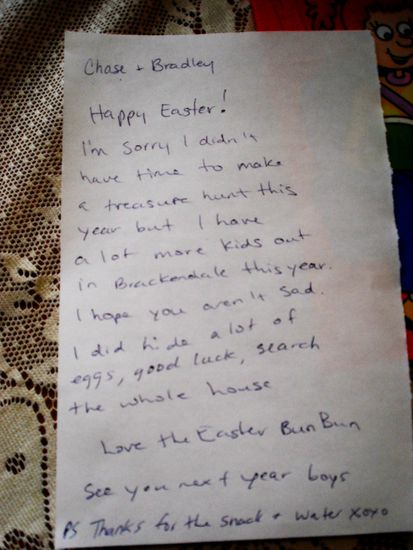 Chase + Bradley
Happy Easter!
I'm sorry I didn't
have time to make
a treasure hunt this
year but I have
a lot more kids out
in Brackendale this year.
I hope you aren't sad.
I did hide a lot of
eggs, good luck, search
the whole house
Love the Easter Bun Bun
See you next year boys
PS Thanks for the snack + water xoxo